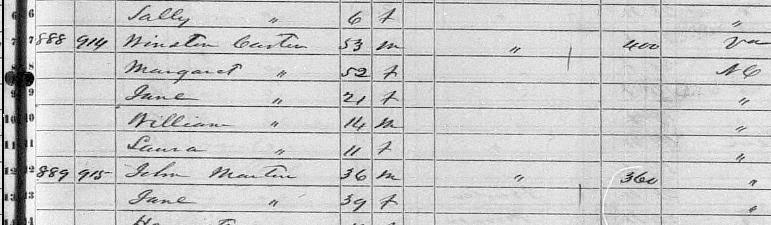 6 6 Sally " 6 f "
7 7 888 914 Winston Carter 53 m " 400 Va
8 Margaret " 52 f NC
9 9 Jane " 21 f "
10 10 William " 14 m "
11 11 Laura " 11 f "
12 12 889 915 John Martin 36 m " 360 "
13 13 Jane " 39 f "
14